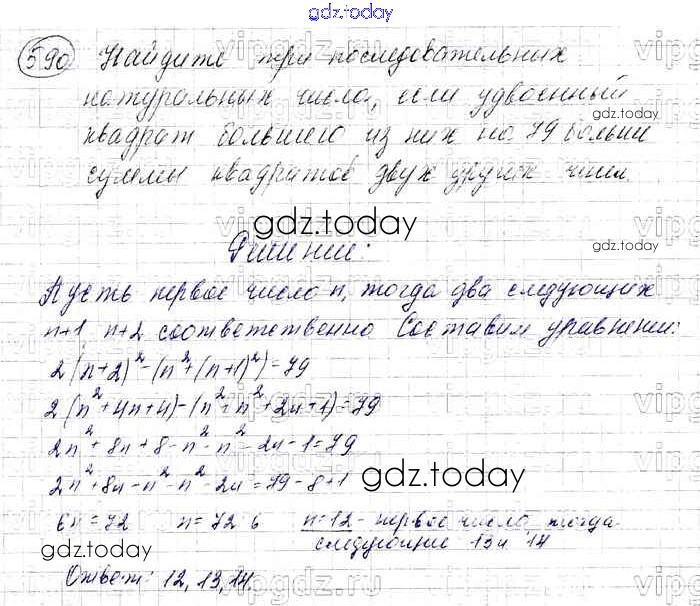 gdz.today
590 Найдите три последовательных
натуральных числа, если удвоенный
квадрат большего из них на 79 больше
суммы квадратов двух других чисел.
gdz.today
Решение:
Пусть первое число n, тогда два следующих
n+1, n+2 соответственно. Составим уравнение:
2(n+2)²-(n²+(n+1)²)=79
2(n²+4n+4)-(n²+n²+2n+1)=79
2n²+8n+8-n²-n²-2n-1=79
2n²+8n-n²-n²-2n=79-8+1
gdz.today
6n=72 n=72:6 n=12 - первое число, тогда
следующие 13 и 14
gdz.today
Ответ: 12, 13, 14.